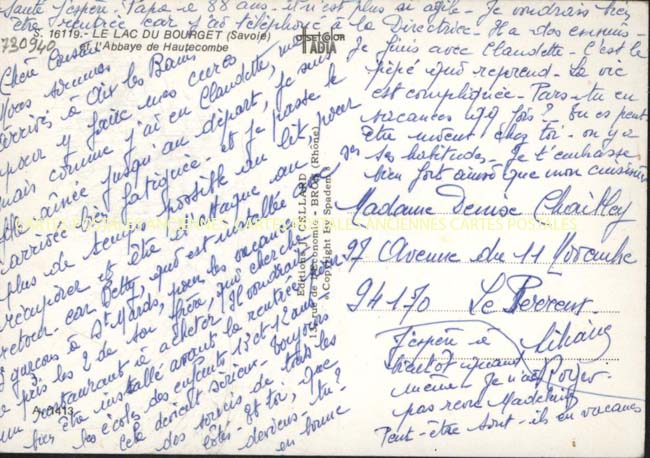 S. 16119.- LE LAC DU BOURGET (Savoie)
L'Abbaye de Hautecombe
730940
Chère Cousine
Nous sommes
arrivés à Aix les Bains
pour y faire mes cures
mais comme j'ai eu Claudette,
jusqu'au départ, je suis
arrivée bien fatiguée - et je passe le
plus de temps possible au lit, pour
récupérer et être d'attaque au
retour - car Betty, qui est installée
garçons à St Mards, pour les vacances
pris les 2 de son frère, qui cherche
un restaurant à acheter (Il voudrait
bien être installé avant la rentrée
les écoles des enfants 13 et 12 ans
Cela devrait sérieux. Toujours
des soucis de tous les
côtés - Et toi, que
deviens-tu?
en bonne
santé j'espère. Papa a 88 ans - il n'est plus si agile - Je voudrais
être rentrée car j'ai téléphoné à la Directrice - Il a des ennuis -
Je finis avec Claudette - C'est le
pépé qui reprend - La vie
est compliquée - Pars-tu en
vacances qq fois? Tu es peut
être mieux chez toi - on y a
ses habitudes - Je t'embrasse
bien fort ainsi que mon cuisinier
Madame Denise
97 Avenue du 11 Novembre
94170 Le Perreux.
J'espère à
bientôt quand
même. Je n'ai
pas revu Madeleine
Peut-être sont-ils en vacances
Liliane
Roger
Editions J. CELLARD
BRON (Rhône)
Copyright by Spadem
A. 1413
CARTES POSTALES ANCIENNES CARTES POSTALES ANCIENNES CARTES POSTALES